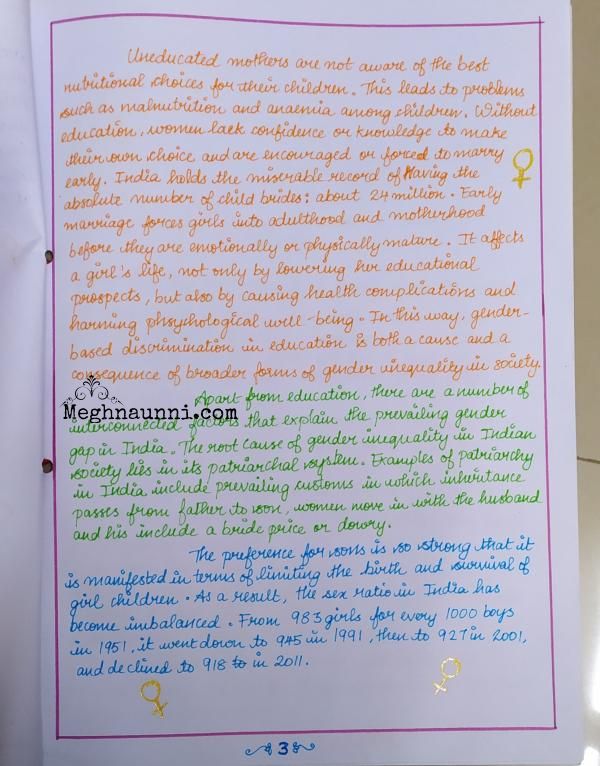 Uneducated mothers are not aware of the best
nutritional choices for their children. This leads to problems
such as malnutrition and anaemia among children. Without
education, women lack confidence or knowledge to make
their own choice and are encouraged or forced to marry
early. India holds the miserable record of Having the
absolute number of child brides: about 24 million. Early
marriage forces girls into adulthood and motherhood
before they are emotionally or physically mature. It affects
a girl's life, not only by lowering her educational
prospects, but also by causing health complications and
harming phsychological well-being. In this way, gender-
based discrimination in education is both a cause and a
consequence of broader forms of gender inequality in society.
Apart from education, there are a number of
Meghnaunni.com
interconnected factors that explain the prevailing gender
gap in India. The root cause of gender inequality in Indian
society lies in its patriarchal system. Examples of patriarchy
in India include prevailing customs in which inheritance
passes from father to son, women move in with the husband
and his include a bride price or dowry.
The preference for sons is so strong that it
is manifested in terms of limiting the birth and survival of
girl children. As a result, the sex ratio in India has
become imbalanced. From 983 girls for every 1000 boys
in 1951, it went down to 945 in 1991, then to 927 in 2001,
and declined to 918 to in 2011.
3